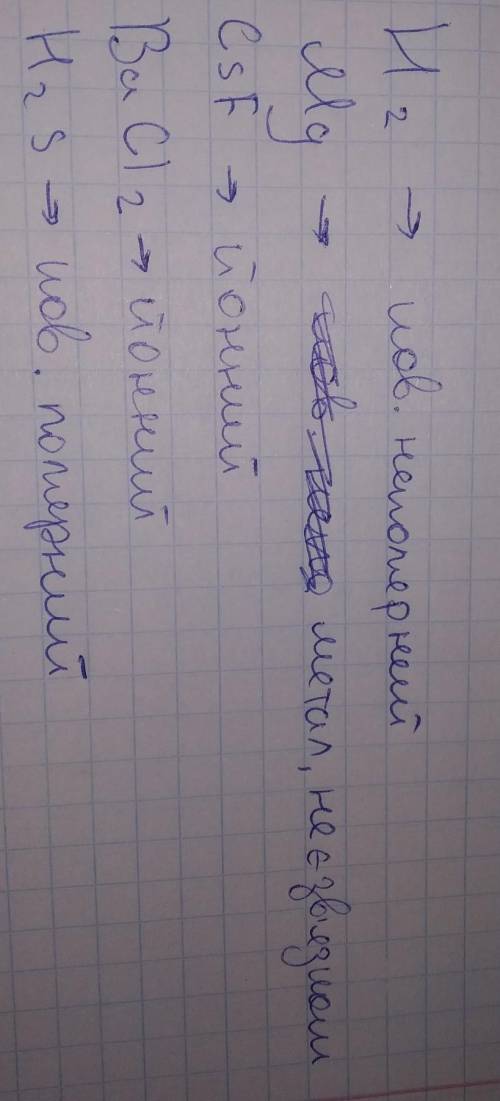 H2 → ков. неполярний
Mg → метал, не є звʼязком
CsF → йонний
BaCl2 → йонний
H2S → ков. полярний